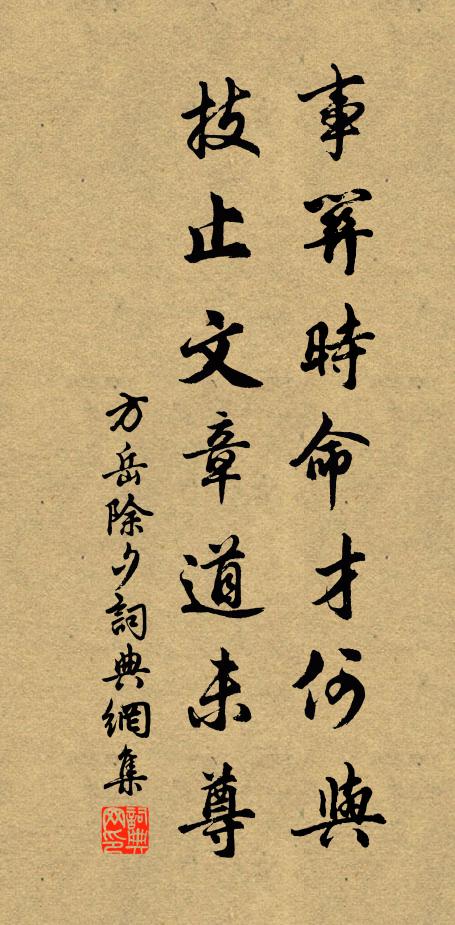 事關時命才何與
技止文章道未尊
方岳除夕詞典網集
詞典网印